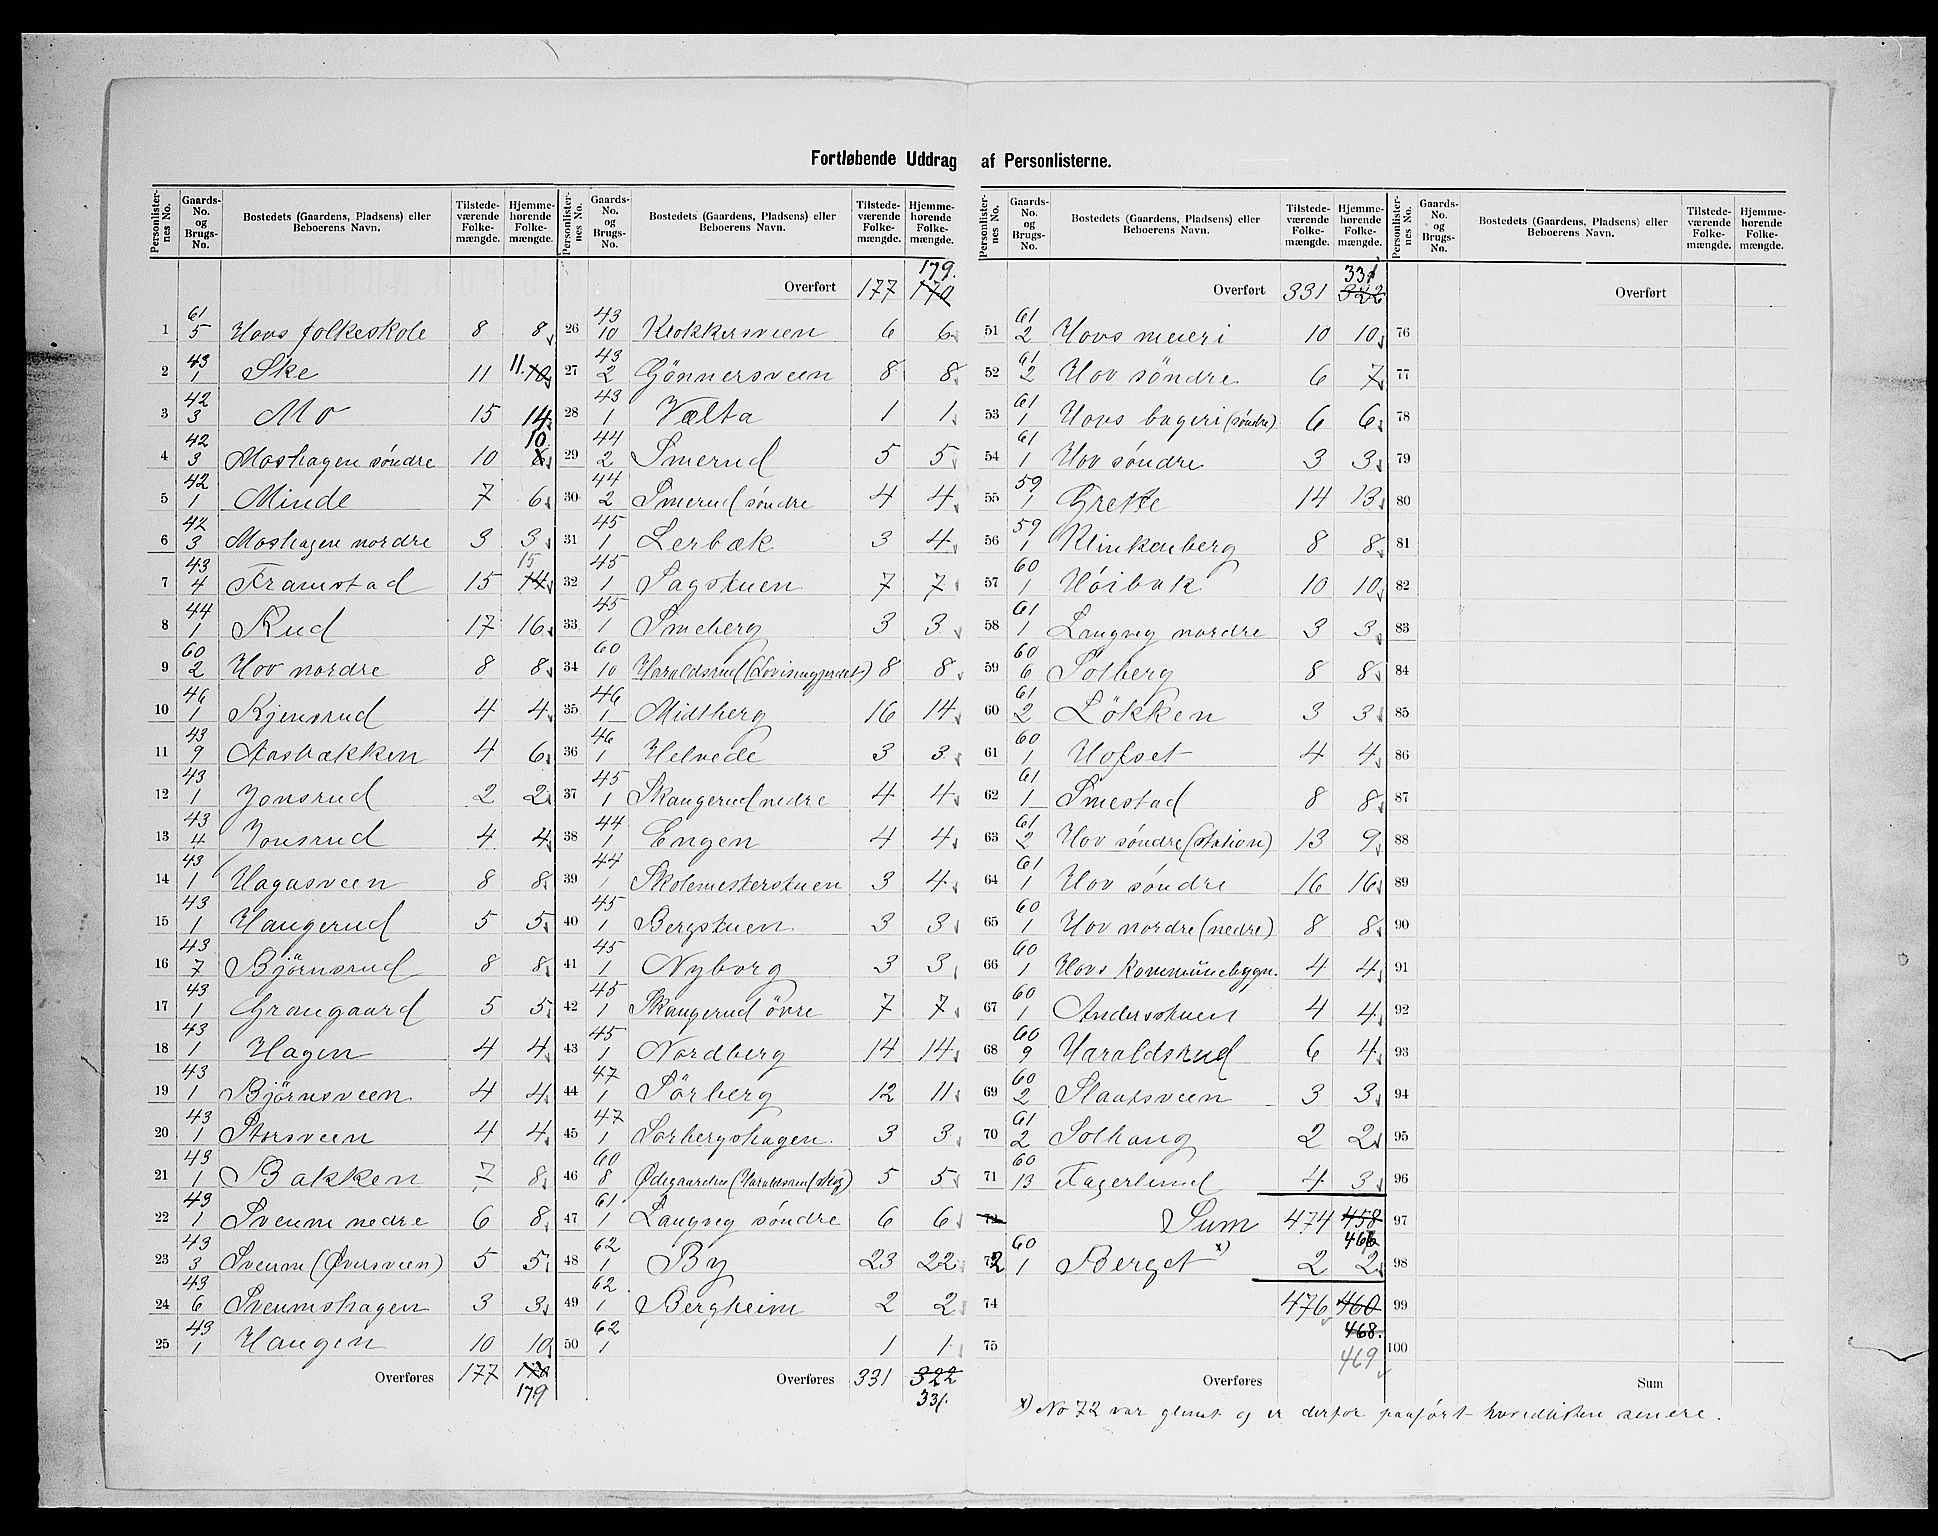 Fortløbende Uddrag af Personlisterne.
Personlisternes No. | Gaards-No. og Brugs-No. | Bostedets (Gaardens, Pladsens) eller Beboerens Navn. | Tilstedeværende Folkemængde. | Hjemmehørende Folkemængde.
1 61/5 Hovs folkeskole 8 8
2 43/1 Ske 11 11. 10
3 42/3 Mo 15 14
4 42/3 Moshagen søndre 10 10 6
5 42/1 Minde 7 6
6 42/3 Moshagen nordre 3 3
7 43/4 Framstad 15 15 14
8 44/1 Rud 17 16
9 60/2 Hov nordre 8 8
10 46/1 Kjensrud 4 4
11 43/9 Aasbakken 4 6
12 43/1 Jonsrud 2 2
13 43/4 Jonsrud 4 4
14 43/1 Hagasveen 8 8
15 43/1 Haugerud 5 5
16 43/7 Björnsrud 8 8
17 43/1 Gronegaard 5 5
18 43/1 Hagen 4 4
19 43/1 Björnsveen 4 4
20 43/1 Storsveen 4 4
21 43/1 Bakken 7 8
22 43/1 Sveum nedre 6 8
23 43/3 Sveum (Øversveen) 5 5
24 43/6 Sveumshagen 3 3
25 43/1 Haugen 10 10
Overføres 177 170
179
Personlisternes No. | Gaards-No. og Brugs-No. | Bostedets (Gaardens, Pladsens) eller Beboerens Navn. | Tilstedeværende Folkemængde. | Hjemmehørende Folkemængde.
179.
Overført 177 170
26 43/10 Klokkersveen 6 6
27 43/2 Gönnersveen 8 8
28 43/1 Vælta 1 1
29 44/2 Smerud 5 5
30 44/2 Smerud søndre 4 4
31 45/1 Lerbæk 3 4
32 45/1 Sagstuen 7 7
33 45/1 Smeberg 3 3
34 60/10 Haraldsrud (Lovisengjerdet) 8 8
35 46/1 Midtberg 16 14
36 46/1 Helvede 3 3
37 45/1 Skaugerud nedre 4 4
38 44/1 Engen 4 4
39 44/1 Skolemesterstuen 3 4
40 45/1 Bergstuen 3 3
41 45/1 Nyborg 3 3
42 45/1 Skaugerud övre 7 7
43 45/1 Nordberg 14 14
44 47/1 Sörberg 12 11
45 47/1 Sorbergshagen. 3 3
46 60/8 Ødegaarden (Haraldsrudskog) 5 5
47 61/1 Langveg søndre 6 6
48 62/1 By 23 22
49 62/1 Bergheim 2 2
50 62/1 1 1
Overføres 331 322
331.
Personlisternes No. | Gaards-No. og Brugs-No. | Bostedets (Gaardens, Pladsens) eller Beboerens Navn. | Tilstedeværende Folkemængde. | Hjemmehørende Folkemængde.
331
Overført 331 322
51 61/2 Hovs meieri 10 10
52 61/2 Hov søndre 6 7
53 61/1 Hovs bageri (søndre) 6 6
54 61/1 Hov søndre 3 3
55 59/1 Grette 14 13
56 59/1 Klinkenberg 8 8
57 60/1 Höibak 10 10
58 61/1 Langveg nordre 3 3
59 60/6 Solberg 8 8
60 61/2 Lökken 3 3
61 60/1 Hofset 4 4
62 61/1 Smestad 8 8
63 61/2 Hov søndre (station) 13 9
64 61/1 Hov søndre 16 16
65 60/1 Hov nordre (nedre) 8 8
66 60/1 Hovs Kommunebygn. 4 4
67 60/1 Andersstuen 4 4
68 60/9 Haraldsrud 6 4
69 60/2 Slaatsveen 3 3
70 61/2 Solhaug 2 2
71 60/13 Fagerlund 4 3
72 Sum 474 458
466
72 60/1 Berget x) 2 2
74 476 460
468.
75 469
Overføres
Personlisternes No. | Gaards-No. og Brugs-No. | Bostedets (Gaardens, Pladsens) eller Beboerens Navn. | Tilstedeværende Folkemængde. | Hjemmehørende Folkemængde.
Overført
76
77
78
79
80
81
82
83
84
85
86
87
88
89
90
91
92
93
94
95
96
97
98
99
100
Sum
x) No 72 var glemt og er derfor paaført hovedlisten senere.